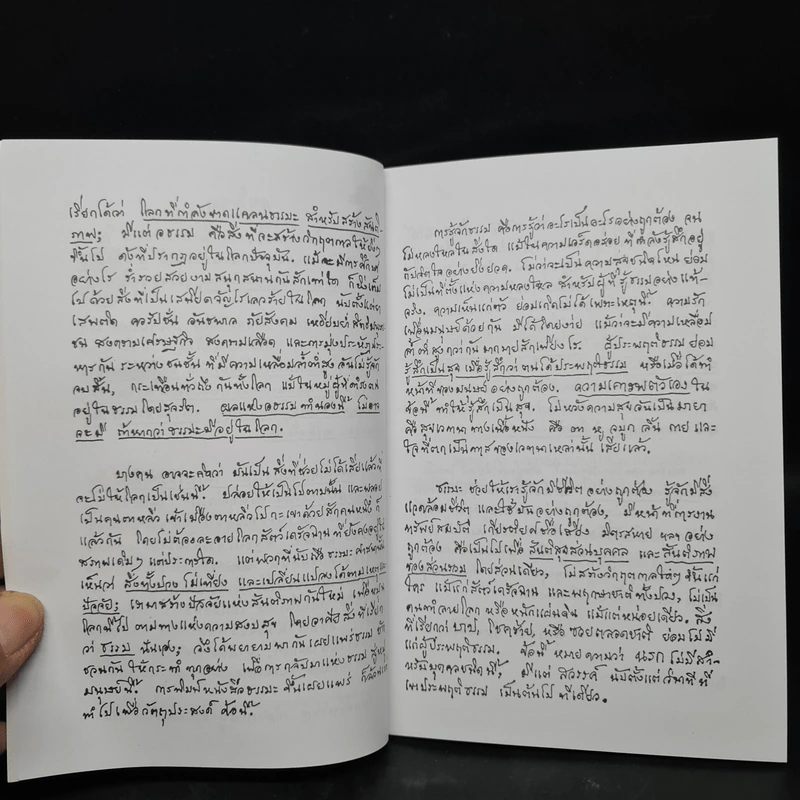 เรียกได้ว่า โลกที่กำลังขาดแคลนธรรมะ สำหรับสร้างสันติ
ภาพ; มีแต่อธรรม คือสิ่งที่จะสร้างวิกฤตกาลให้ยิ่งๆ
ขึ้นไป ดังที่ปรากฏอยู่ในโลกปัจจุบันนี้. แม้จะมีการศึกษา
อย่างไร ร่ำรวยสวยงามสนุกสนานกันสักเท่าใด ก็ยิ่งเต็ม
ไปด้วยสิ่งที่เป็นเสนียดจัญไรเลวร้ายในโลก นับตั้งแต่ยา
เสพติด คอรัปชั่น อันธพาล ภัยสังคม เหยียบย่ำสิทธิมนุษย
ชน สงครามเศรษฐกิจ สงครามเลือด และการมุ่งประหัตประ
หารกัน ระหว่างชนชั้น ที่มีความเหลื่อมล้ำต่ำสูงอันไม่รู้จัก
จบสิ้น, กระเทือนทั่วถึงกันทั้งโลก แม้ในหมู่ผู้ที่ดำรงตน
อยู่ในธรรมโดยสุจริต. ผลแห่งอธรรมทำนองนี้ ไม่อาจ
จะมี ถ้าหากว่าธรรมะมีอยู่ในโลก.
บางคน อาจจะคิดว่า มันเป็นสิ่งที่ช่วยไม่ได้เสียแล้วที่
จะไม่ให้โลกเป็นเช่นนี้. ปล่อยให้เป็นไปตามนั้น และพลอย
เป็นคนตาหลิ่ว เข้าเมืองตาหลิ่วไปกะเขาด้วยสักคนหนึ่งก็
แล้วกัน โดยไม่ต้องละอายโลกสัตว์เดรัจฉานที่ยังคงอยู่ใน
สภาพเดิมๆ แต่ประการใด. แต่พวกที่นับถือธรรมะศาสนา
เห็นว่า สิ่งทั้งปวง ไม่เที่ยง และเปลี่ยนแปลงได้ตามเหตุตาม
ปัจจัย; เราหาสร้างปัจจัยแห่งสันติภาพกันใหม่ เพื่อหมุน
โลกนี้ไป ตามทางแห่งความสงบสุข โดยอาศัยสิ่งที่เรียก
ว่าธรรม นั่นเอง; จึงได้พยายามพากันเผยแพร่ธรรม ชัก
ชวนกัน ให้กระทำทุกอย่าง เพื่อการกลับมาแห่งธรรม สู่หมู่
มนุษย์นี้. การพิมพ์หนังสือธรรมะ ขึ้นเผยแพร่ ก็ล้วนแต่
ทำไปเพื่อวัตถุประสงค์ ข้อนี้.
การรู้จักธรรม คือการรู้ว่าอะไรเป็นอะไรอย่างถูกต้อง จน
ไม่หลงใหลในสิ่งใด แม้ในความเอร็ดอร่อย ที่กำลังรู้สึกอยู่
กับจิตใจอย่างยิ่งยวด. ไม่ว่าจะเป็นความสุขชนิดไหน ย่อม
ไม่เป็นที่ตั้งแห่งความหลงใหล สำหรับผู้ที่รู้ธรรมอย่างแท้-
จริง. ความเห็นแก่ตัว ย่อมเกิดไม่ได้เพราะเหตุนี้. ความรัก
เพื่อนมนุษย์ด้วยกัน มีได้โดยง่าย แม้ว่าจะมีความเหลื่อม
ล้ำต่ำสูงกว่ากันมากมายสักเพียงไร. ผู้ประพฤติธรรม ย่อม
รู้สึกเป็นสุข เมื่อรู้สึกว่าตนได้ประพฤติธรรม หรือเมื่อได้ทำ
หน้าที่ของมนุษย์อย่างถูกต้อง. ความเคารพตัวเอง ใน
ข้อนี้ ทำให้รู้สึกเป็นสุข. ไม่หวังความสุขอันเป็นมายา
คือสุขเวทนาทางเนื้อหนัง คือ ตา หู จมูก ลิ้น กาย และ
ใจที่ตกเป็นทาสของเวทนาเหล่านั้น เสียแล้ว.
ธรรมะ ช่วยให้เรารู้จักมีชีวิตอย่างถูกต้อง รู้จักมีสิ่ง
แวดล้อมชีวิต และใช้มันอย่างถูกต้อง, มีหน้าที่การงาน
ทรัพย์สมบัติ เกียรติยศชื่อเสียง มิตรสหาย ฯลฯ อย่าง
ถูกต้อง คือเป็นไปเพื่อ สันติสุขส่วนบุคคล และสันติภาพ
ของส่วนรวม โดยส่วนเดียว, ไม่สร้างวิกฤตกาลใดๆ ขึ้นแก่
ใคร แม้แก่สัตว์เดรัจฉาน และพฤกษาชาติทั้งปวง, ไม่เป็น
คนทำลายโลก หรือหนักแผ่นดิน แม้แต่หน่อยเดียว. สิ่ง
ที่เรียกว่า บาป, โชคร้าย, หรือ ซวยตลอดชาติ ย่อมไม่มี
แก่ผู้ประพฤติธรรม. ข้อนี้ หมายความว่า นรก ไม่มีสำ-
หรับบุคคลชนิดนี้. มีแต่ สวรรค์ นับตั้งแต่วินาทีที่
เขาประพฤติธรรม เป็นต้นไป ทีเดียว.